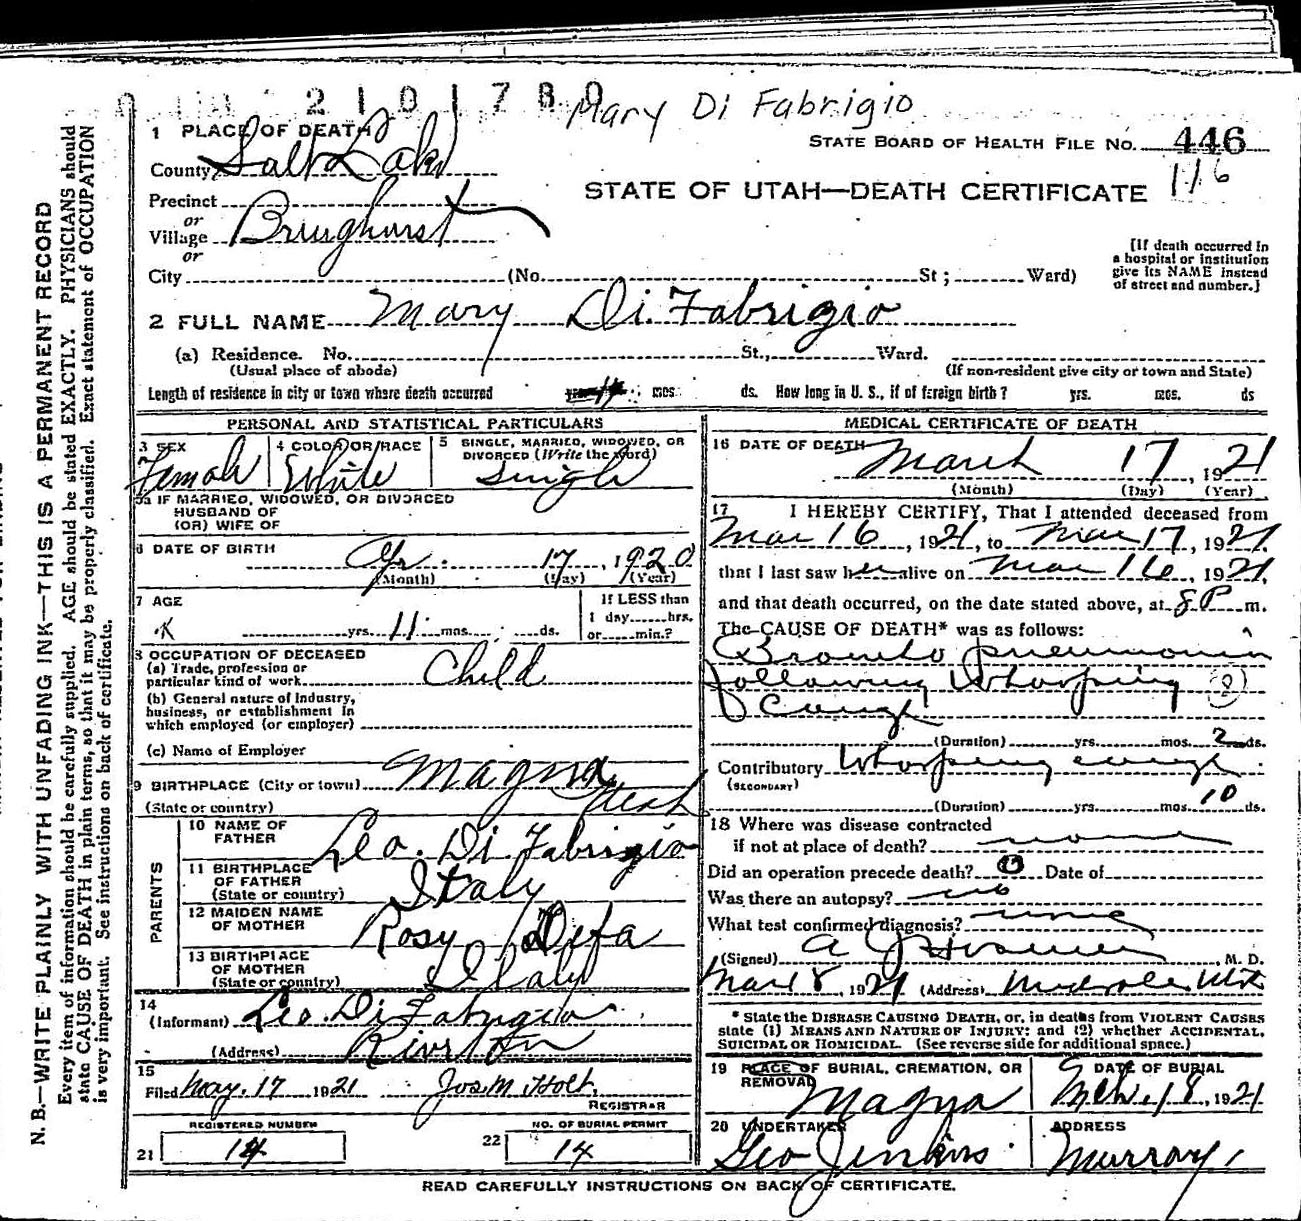 2 1 0 1 7 8 0
Mary Di Fabrigio
1 PLACE OF DEATH
STATE BOARD OF HEALTH FILE No. 446
County Salt Lake
116
STATE OF UTAH—DEATH CERTIFICATE
Precinct
or
Village Bringhurst
or
[If death occurred in
a hospital or institution
give its NAME instead
of street and number.]
City (No. St ; Ward)
2 FULL NAME Mary Di Fabrigio
(a) Residence. No. St., Ward.
(Usual place of abode) (If non-resident give city or town and State)
Length of residence in city or town where death occurred yrs. 11 mos. ds. How long in U. S., if of foreign birth ? yrs. mos. ds
PERSONAL AND STATISTICAL PARTICULARS
3 SEX Female
4 COLOR OR RACE White
5 SINGLE, MARRIED, WIDOWED, OR
DIVORCED (Write the word)
Single
5a IF MARRIED, WIDOWED, OR DIVORCED
HUSBAND OF
(OR) WIFE OF
6 DATE OF BIRTH Apr. 17, 1920
(Month) (Day) (Year)
7 AGE
yrs. 11 mos. ds.
If LESS than
1 day hrs.
or min.?
8 OCCUPATION OF DECEASED
(a) Trade, profession or
particular kind of work Child
(b) General nature of Industry,
business, or establishment in
which employed (or employer)
(c) Name of Employer
9 BIRTHPLACE (City or town) Magna
(State or country) Utah
PARENTS
10 NAME OF
FATHER Leo. Di Fabrigio
11 BIRTHPLACE
OF FATHER
(State or country) Italy
12 MAIDEN NAME
OF MOTHER Rosy Defa
13 BIRTHPLACE
OF MOTHER
(State or country) Italy
14
(Informant) Leo. Di Fabrigio
(Address) Riverton
15
Filed May. 17 1921 Jos. M Holt,
REGISTRAR
REGISTERED NUMBER
21 14
NO. OF BURIAL PERMIT
22 14
MEDICAL CERTIFICATE OF DEATH
16 DATE OF DEATH March 17, 1921
(Month) (Day) (Year)
17 I HEREBY CERTIFY, That I attended deceased from
Mar 16, 1921, to Mar 17, 1921,
that I last saw her alive on Mar 16, 1921,
and that death occurred, on the date stated above, at 8 P m.
The CAUSE OF DEATH* was as follows:
Broncho pneumonia
following Whooping
Cough
(Duration) yrs. mos. 2 ds.
Contributory Whooping cough
(SECONDARY)
(Duration) yrs. mos. 10 ds.
18 Where was disease contracted
if not at place of death?
Did an operation precede death? Date of
Was there an autopsy? no
What test confirmed diagnosis? none
(Signed) M. D.
1921 (Address) Midvale Utah
* State the DISEASE CAUSING DEATH, or, in deaths from VIOLENT CAUSES
state (1) MEANS AND NATURE OF INJURY; and (2) whether ACCIDENTAL,
SUICIDAL OR HOMICIDAL. (See reverse side for additional space.)
19 PLACE OF BURIAL, CREMATION, OR
REMOVAL Magna
DATE OF BURIAL
Mch. 18, 1921
20 UNDERTAKER
Geo Jenkins
ADDRESS
Murray,
READ CAREFULLY INSTRUCTIONS ON BACK OF CERTIFICATE.
N. B.—WRITE PLAINLY WITH UNFADING INK—THIS IS A PERMANENT RECORD
Every item of information should be carefully supplied. AGE should be stated EXACTLY. PHYSICIANS should
state CAUSE OF DEATH in plain terms, so that it may be properly classified. Exact statement of OCCUPATION
is very important. See instructions on back of certificate.